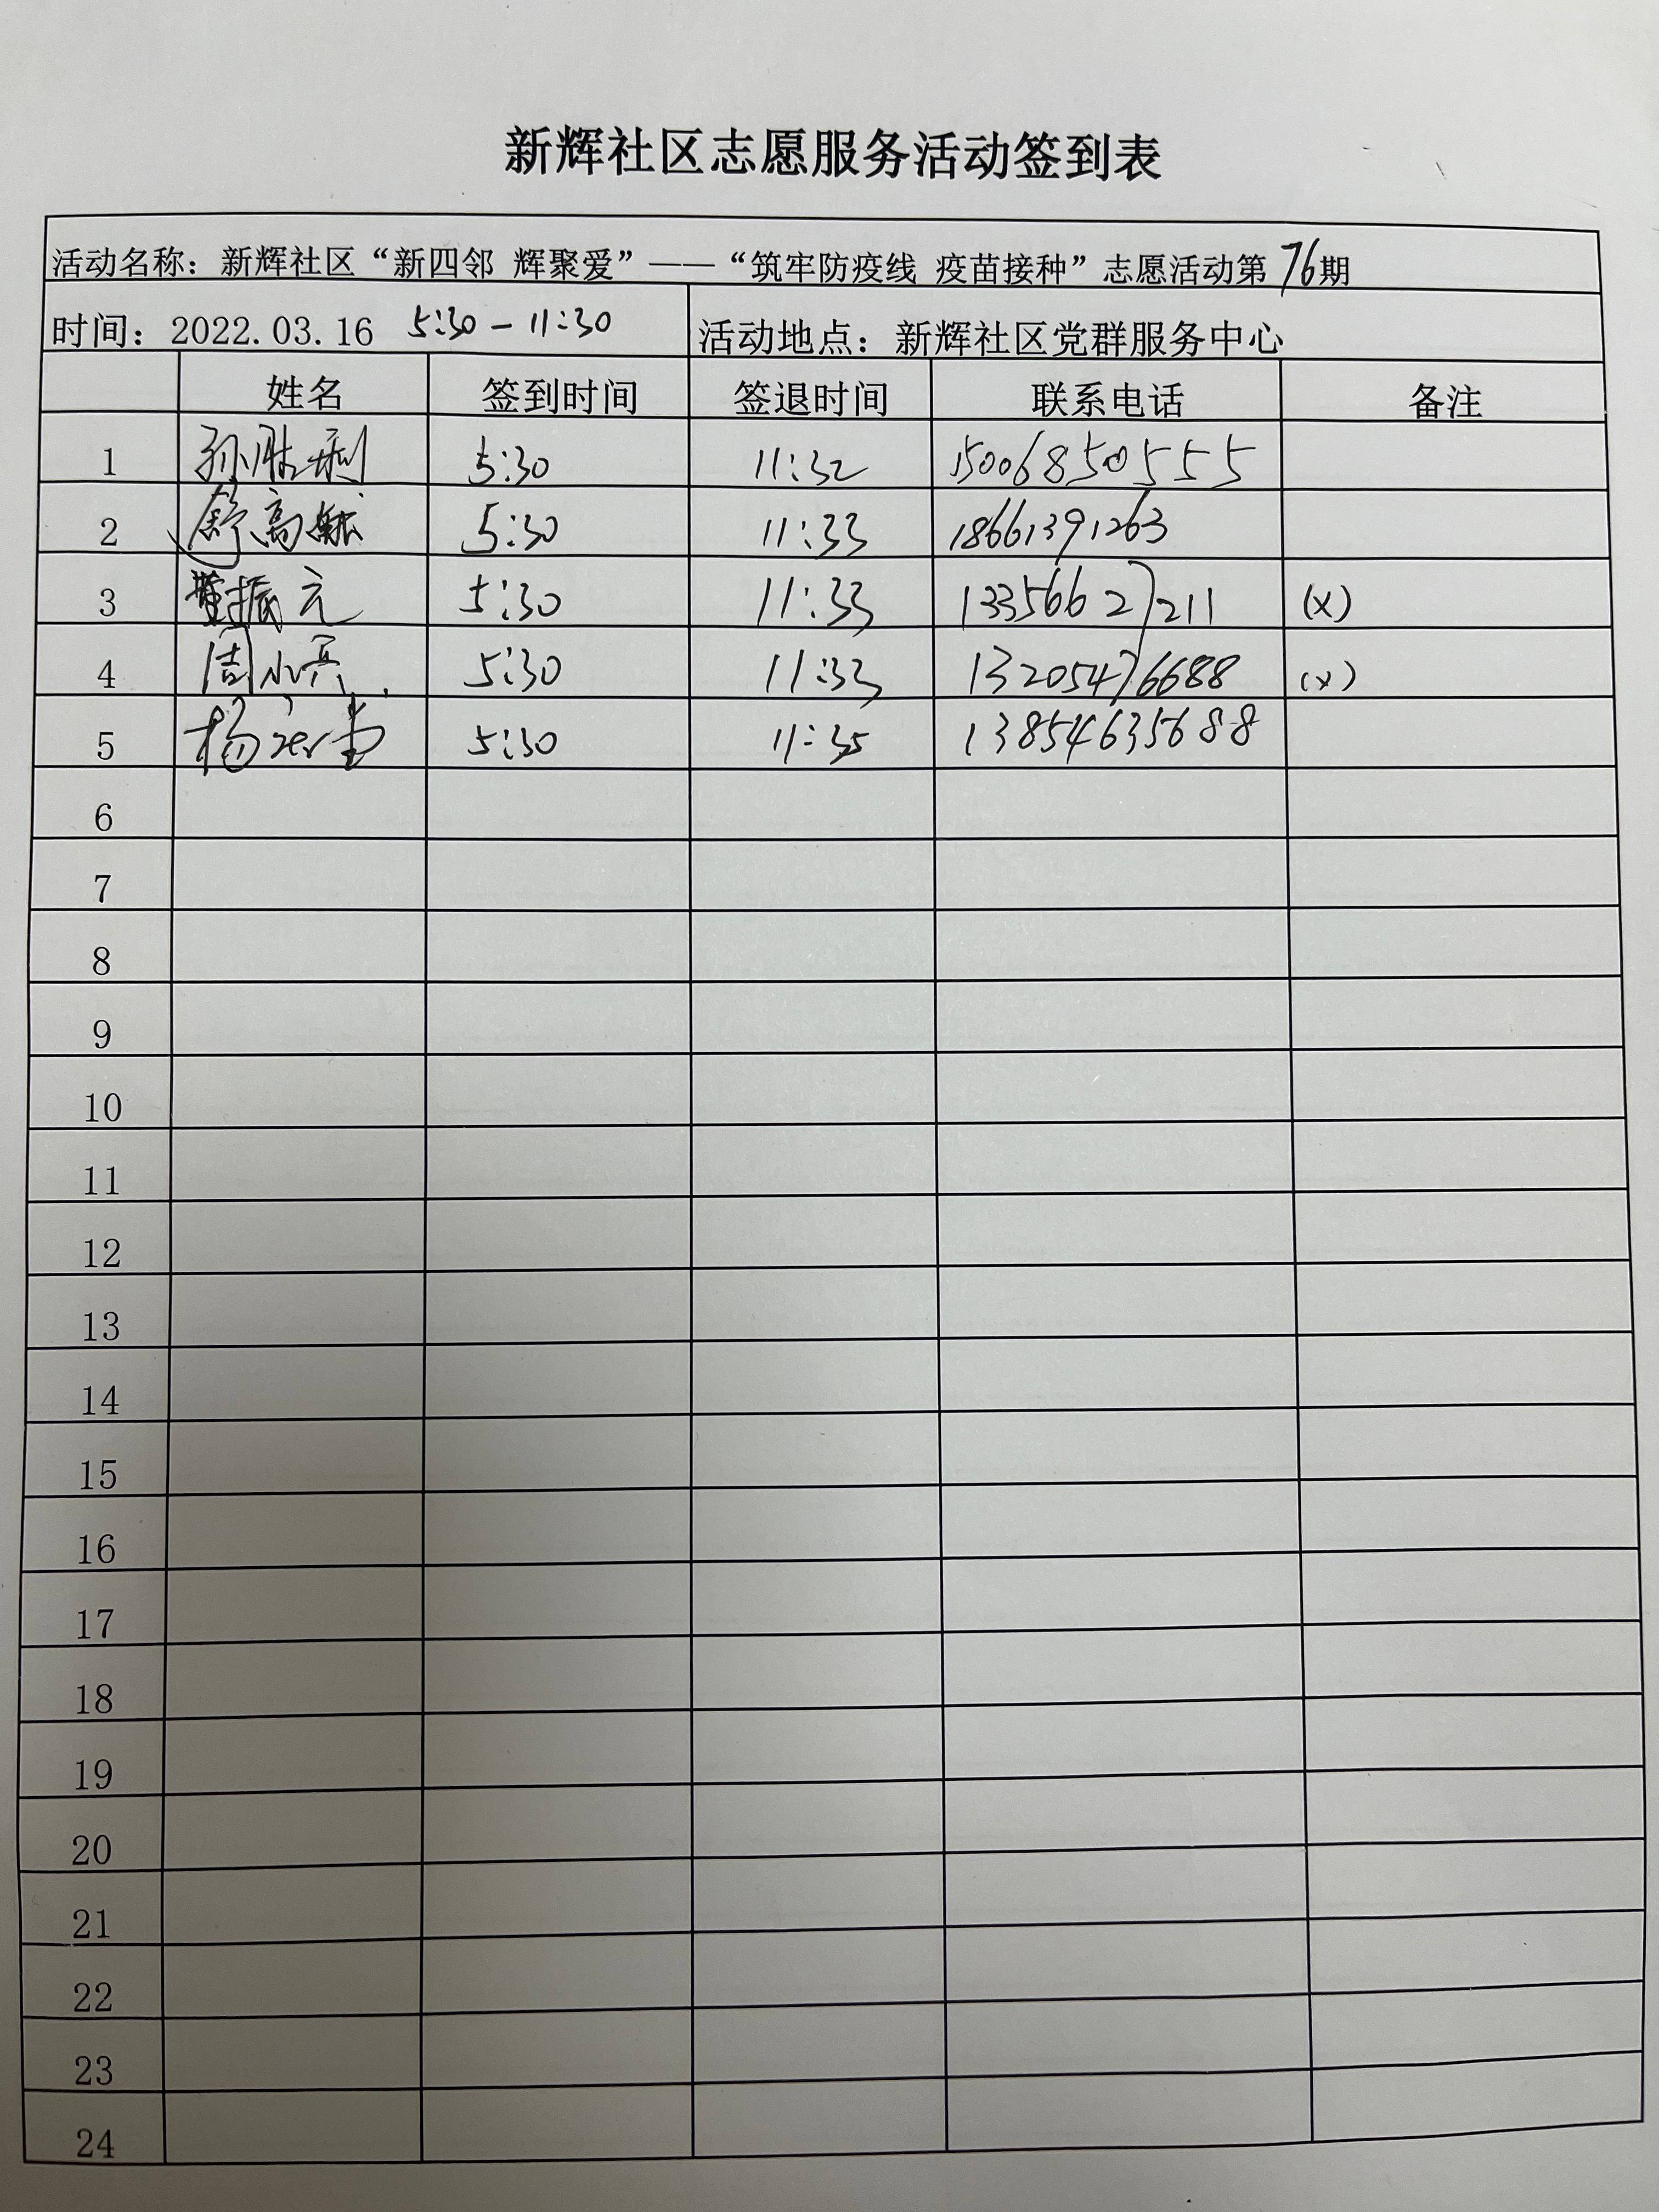 新辉社区志愿服务活动签到表
活动名称：新辉社区“新四邻 辉聚爱”——“筑牢防疫线 疫苗接种”志愿活动第76期
时间：2022.03.16 5:30-11:30 活动地点：新辉社区党群服务中心
姓名 签到时间 签退时间 联系电话 备注
1 孙胜利 5:30 11:32 15006850555
2 舒高 5:30 11:33 18661391263
3 董振元 5:30 11:33 13356627211 (x)
4 周小兵 5:30 11:33 13205476688 (x)
5 杨 5:30 11:35 13854635688
6
7
8
9
10
11
12
13
14
15
16
17
18
19
20
21
22
23
24